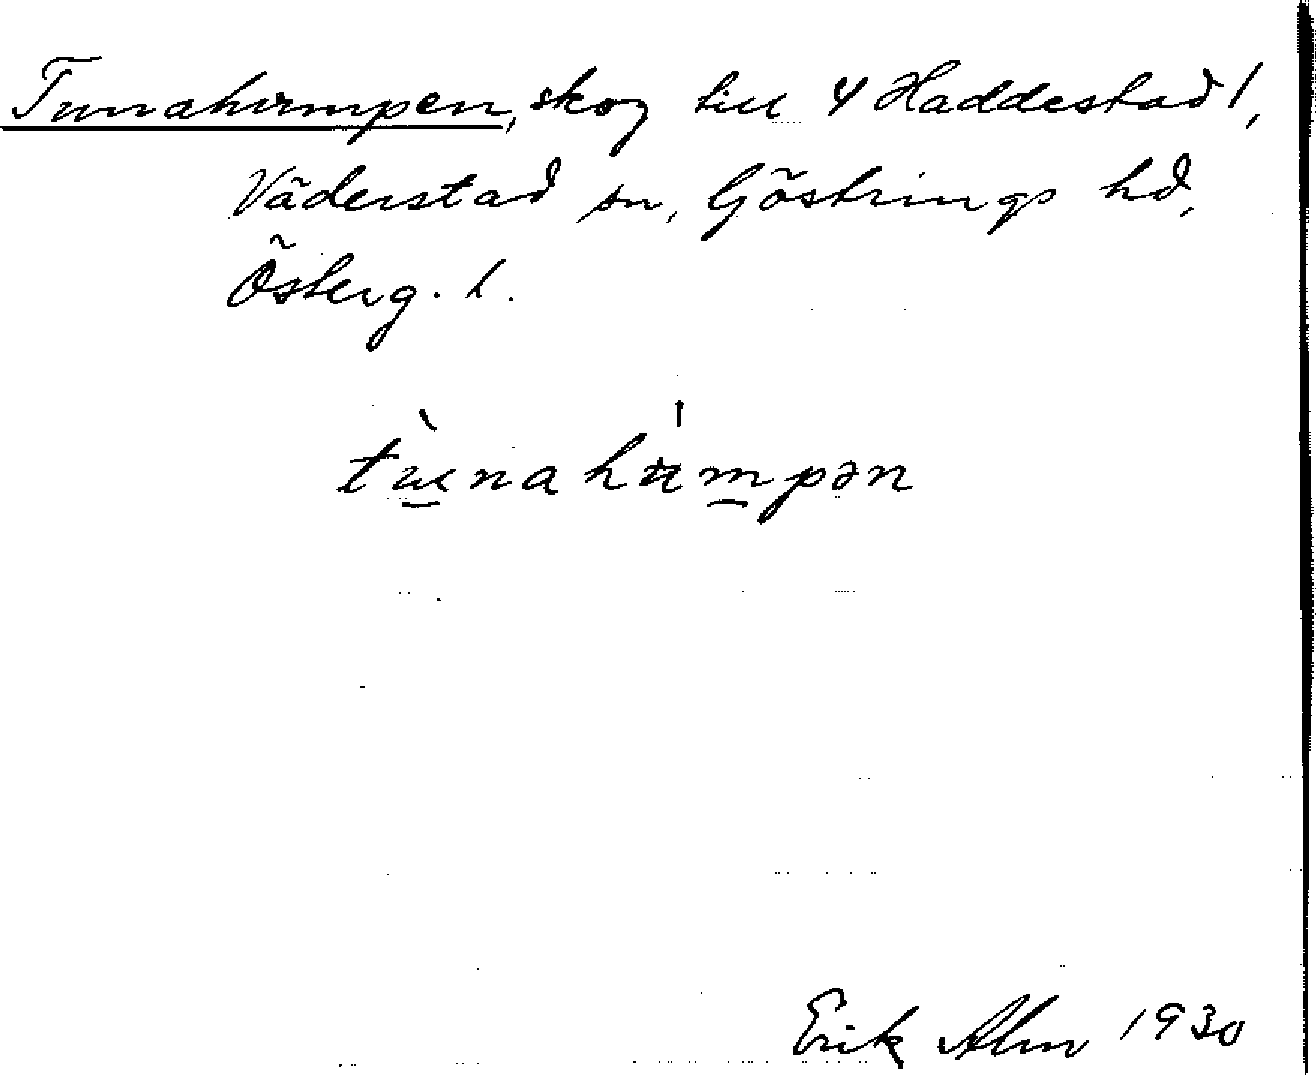 Tunahumpen, skog till 4 Haddestad 1,
Väderstad sn, Göstrings hd,
Österg. l.
tùnahúmpən
Erik Alm 1930